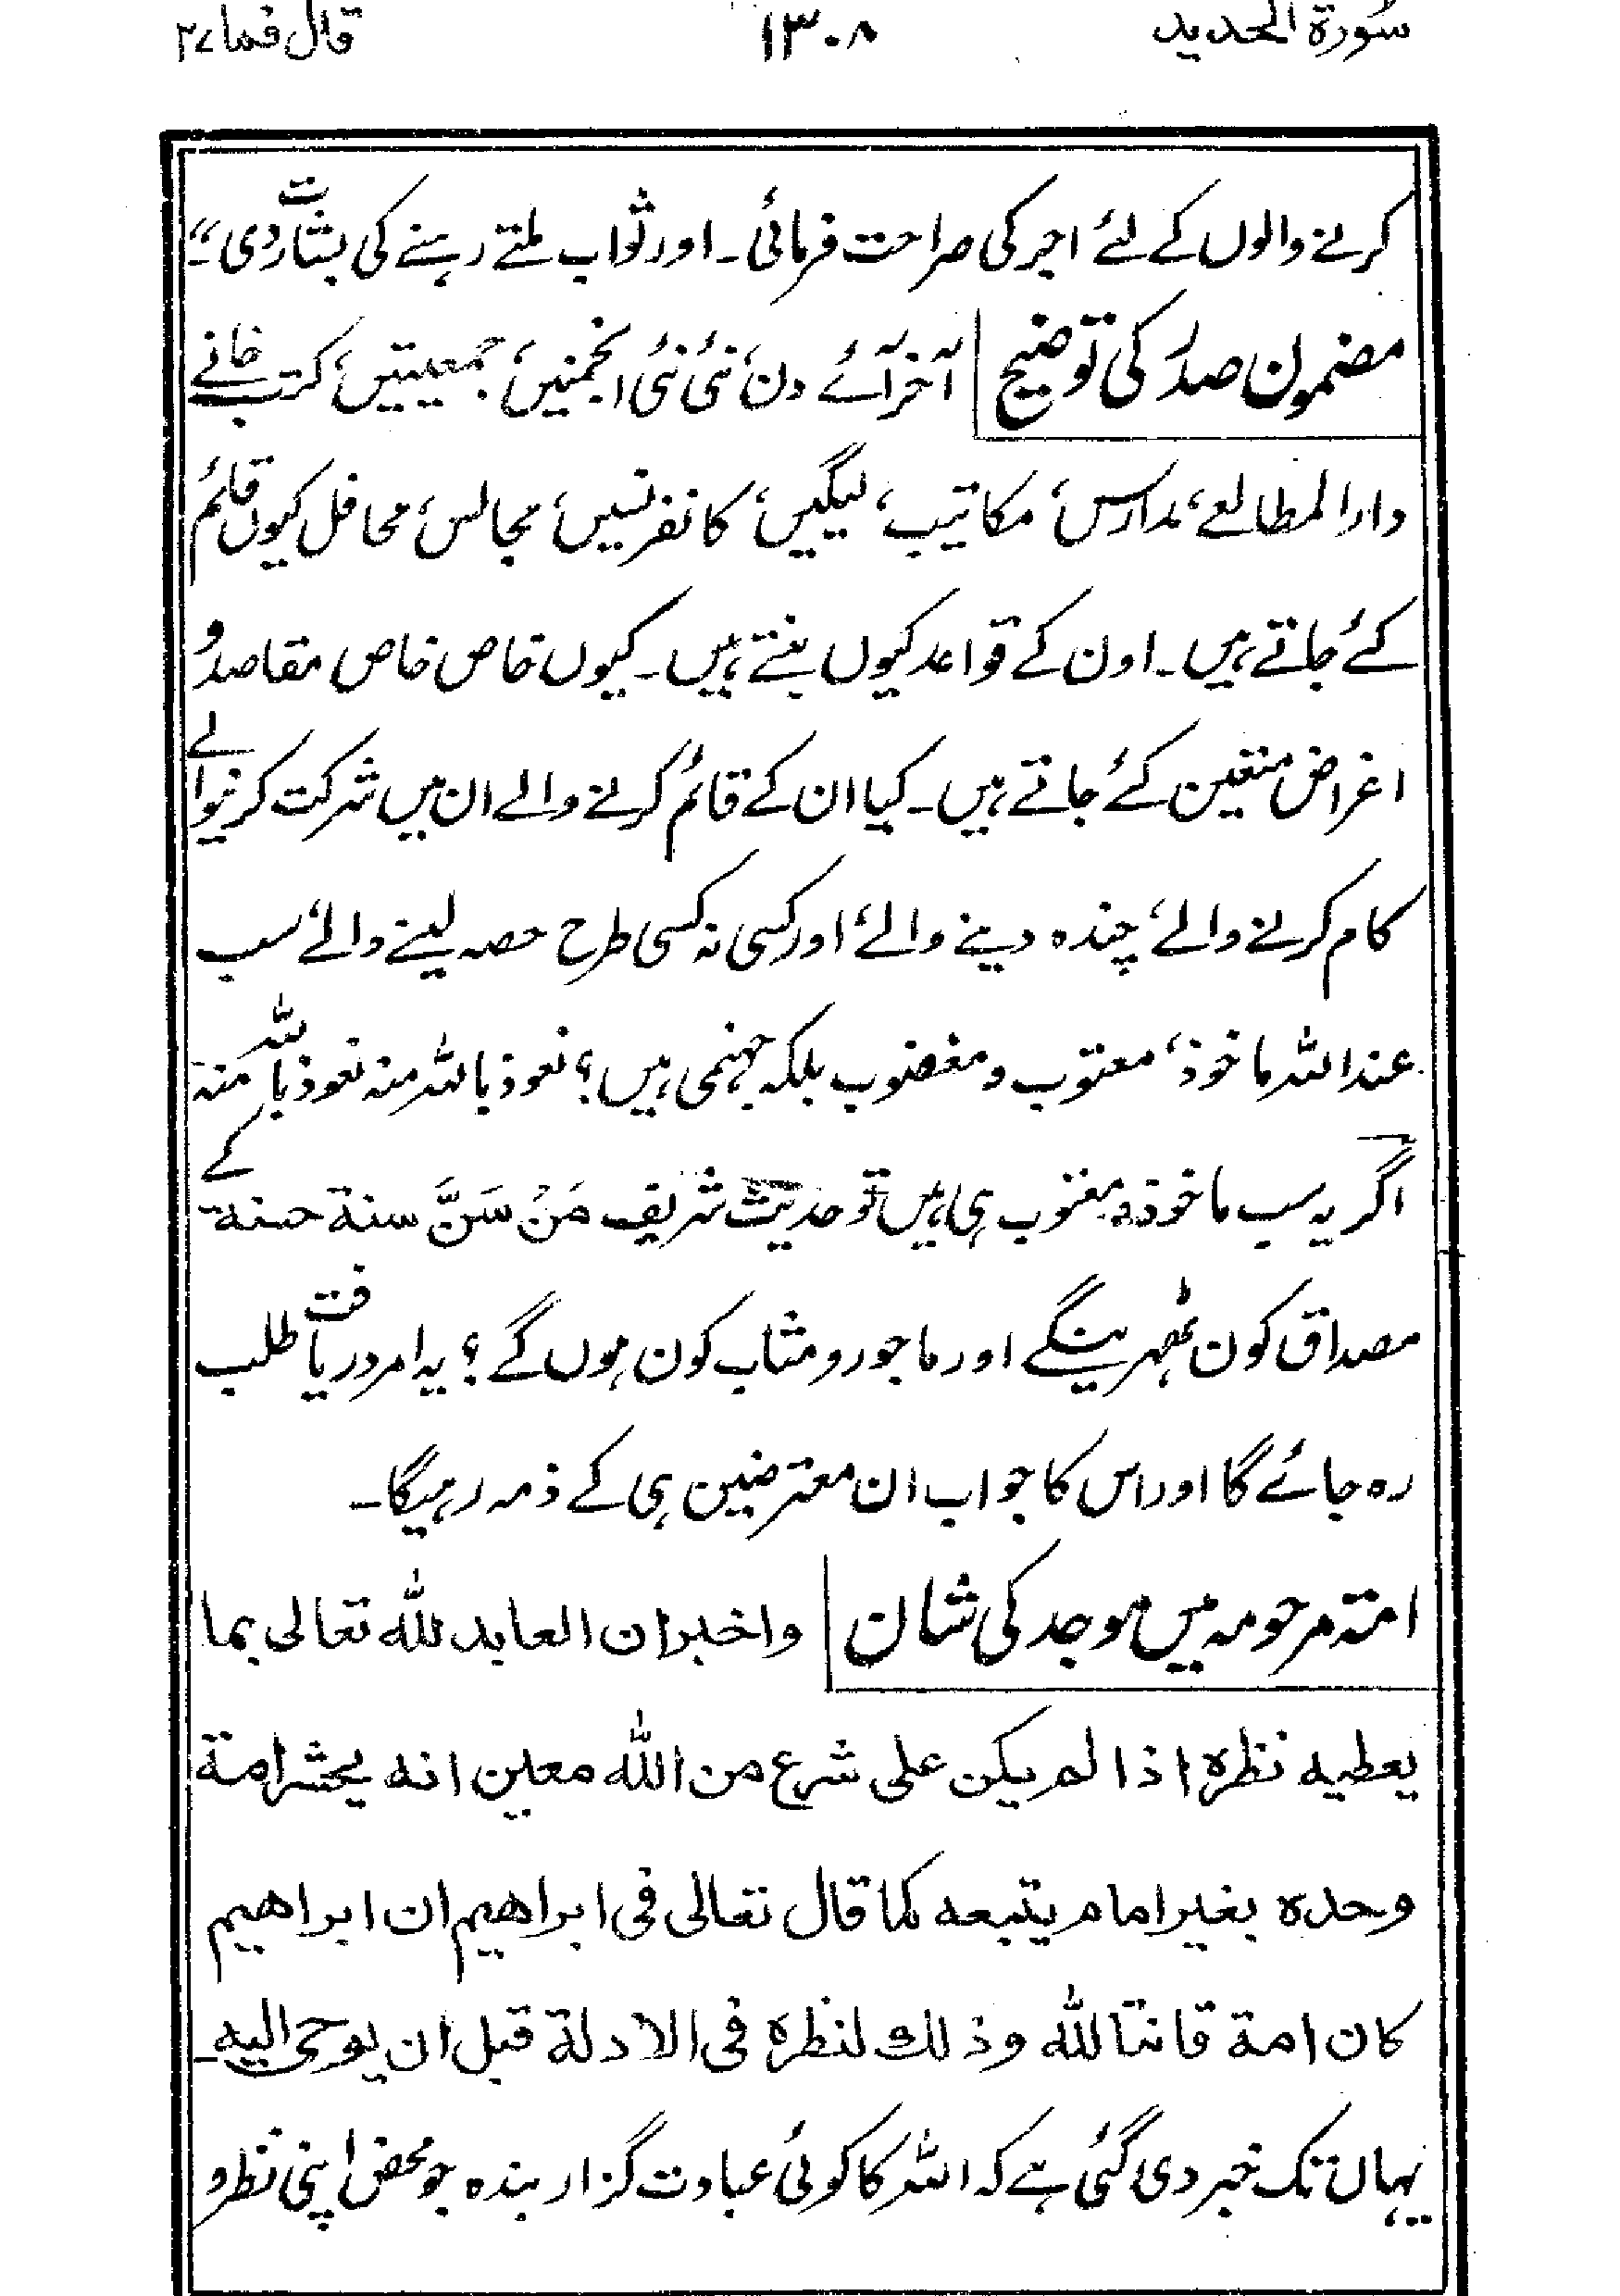 سُورة الحديد ۱۳۰۸ قال فما ۲۷
کرنے والوں کے لئے اجر کی صراحت فرمائی۔ اور ثواب ملتے رہنے کی بشارت دی"۔
مضمون صدر کی توضیح آخر آئے دن، نئی نئی انجمنیں، جمعیتیں، کتب خانے
دارالمطالعے، مدارس، مکاتیب، لیگیں، کانفرنسیں، مجالس، محافل کیوں قائم
کئے جاتے ہیں۔ اون کے قواعد کیوں بنتے ہیں۔ کیوں خاص خاص مقاصد و
اغراض متعین کئے جاتے ہیں۔ کیا ان کے قائم کرنے والے ان میں شرکت کرنیوالے
کام کرنے والے، چندہ دینے والے، اور کسی نہ کسی طرح حصہ لینے والے، سب
عنداللہ ماخوذ، معتوب و مغضوب بلکہ جہنمی ہیں؟ نعوذ باللہ منہ نعوذ باللہ منہ
اگر یہ سب ماخوذ و معتوب ہی ہیں تو حدیث شریف مَنْ سَنَّ سنة حسنة کے
مصداق کون ٹھہرینگے اور ماجور و مثاب کون ہوں گے؟ یہ امر دریافت طلب
رہ جائے گا اور اس کا جواب ان معترضین ہی کے ذمہ رہیگا۔
امتہ مرحومہ میں موجد کی شان واخبر ان العابد لله تعالى بما
يعطيه نظره اذا لم يكن على شرع من الله معين انه يحشر امة
وحده بغير امام يتبعه كما قال تعالى فى ابراهيم ان ابراهيم
كان امة قانتا لله وذلك لنظره فى الادلة قبل ان يوحى اليه۔
یہاں تک خبر دی گئی ہے کہ اللہ کا کوئی عبادت گزار بندہ جو محض اپنی نظر و